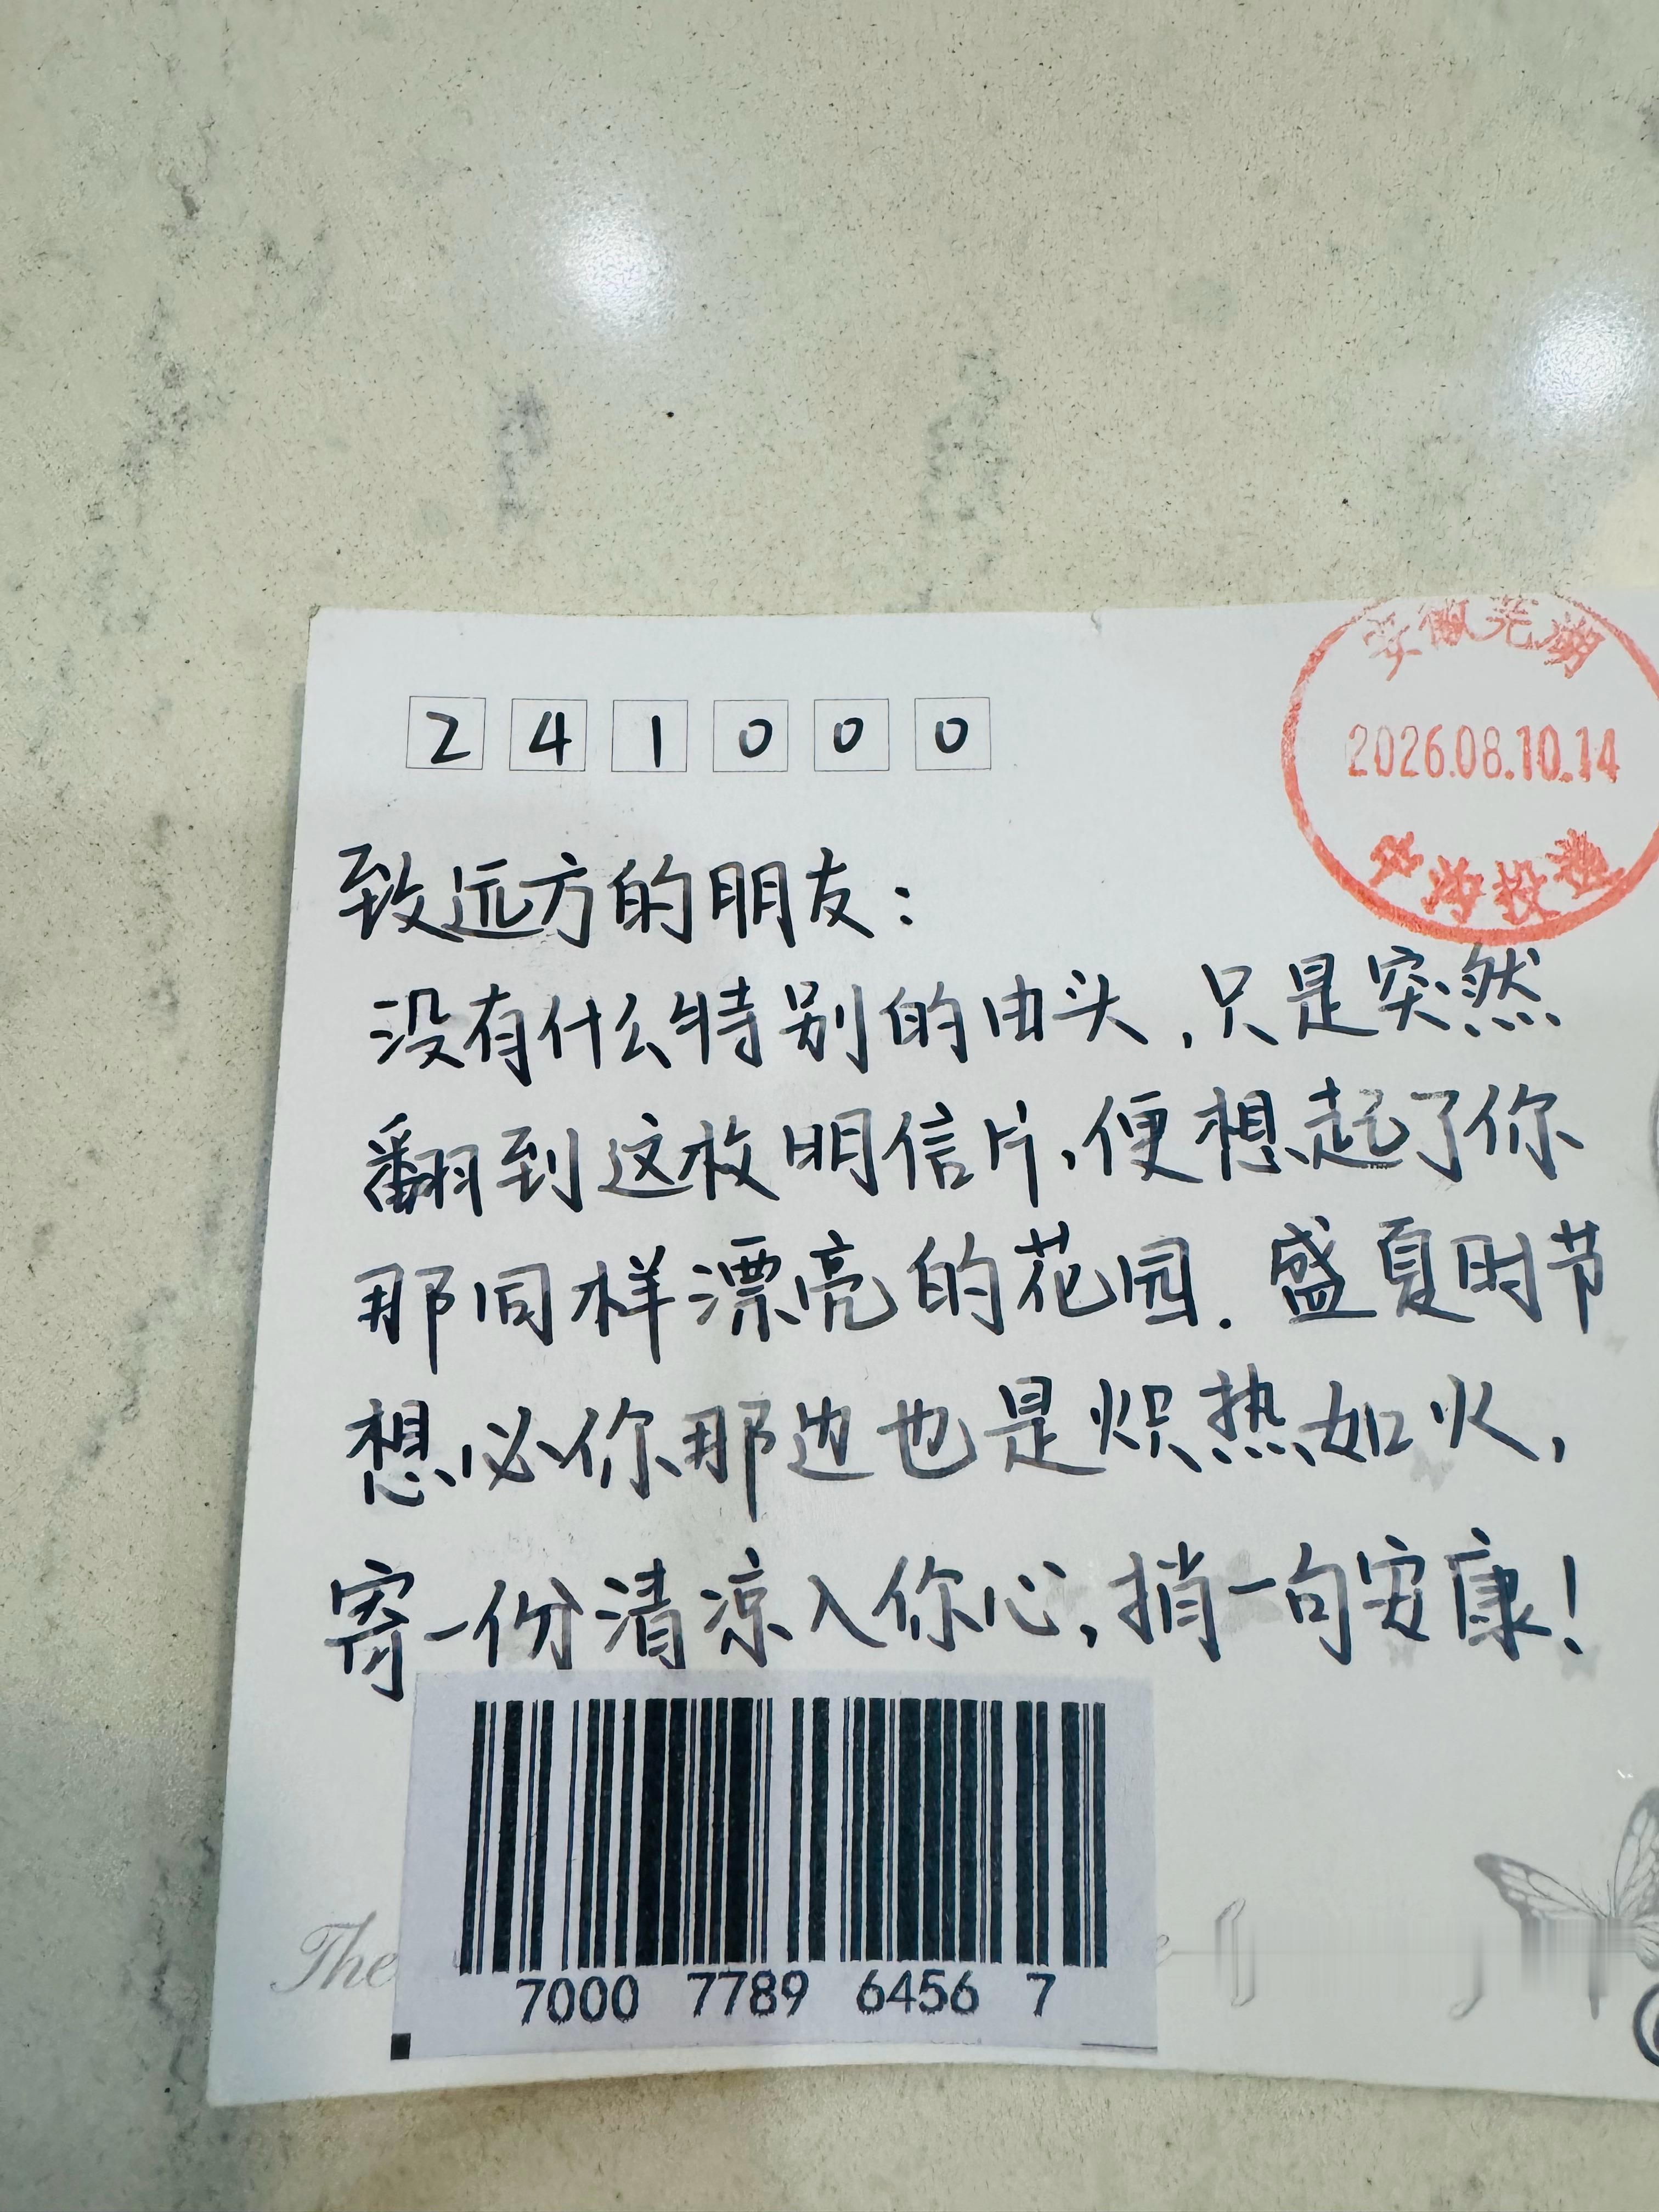 241000
安徽芜湖
2026.08.10.14
致远方的朋友：
没有什么特别的由头，只是突然
翻到这枚明信片，便想起了你
那同样漂亮的花园．盛夏时节
想必你那边也是炽热如火，
寄一份清凉入你心，捎一句安康！
7000 7789 6456 7
The